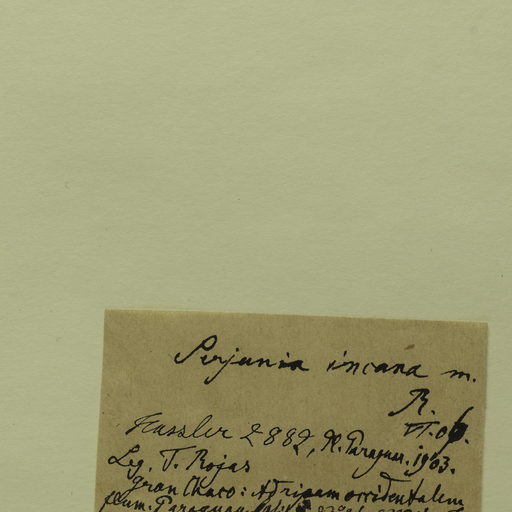 Serjania incana m.
R.
VI.06.
Hassler 2882, Pl. Paraguar. 1903.
Leg. T. Rojas
Gran Chaco: Ad ripam occidentalem
flum. Paraguay